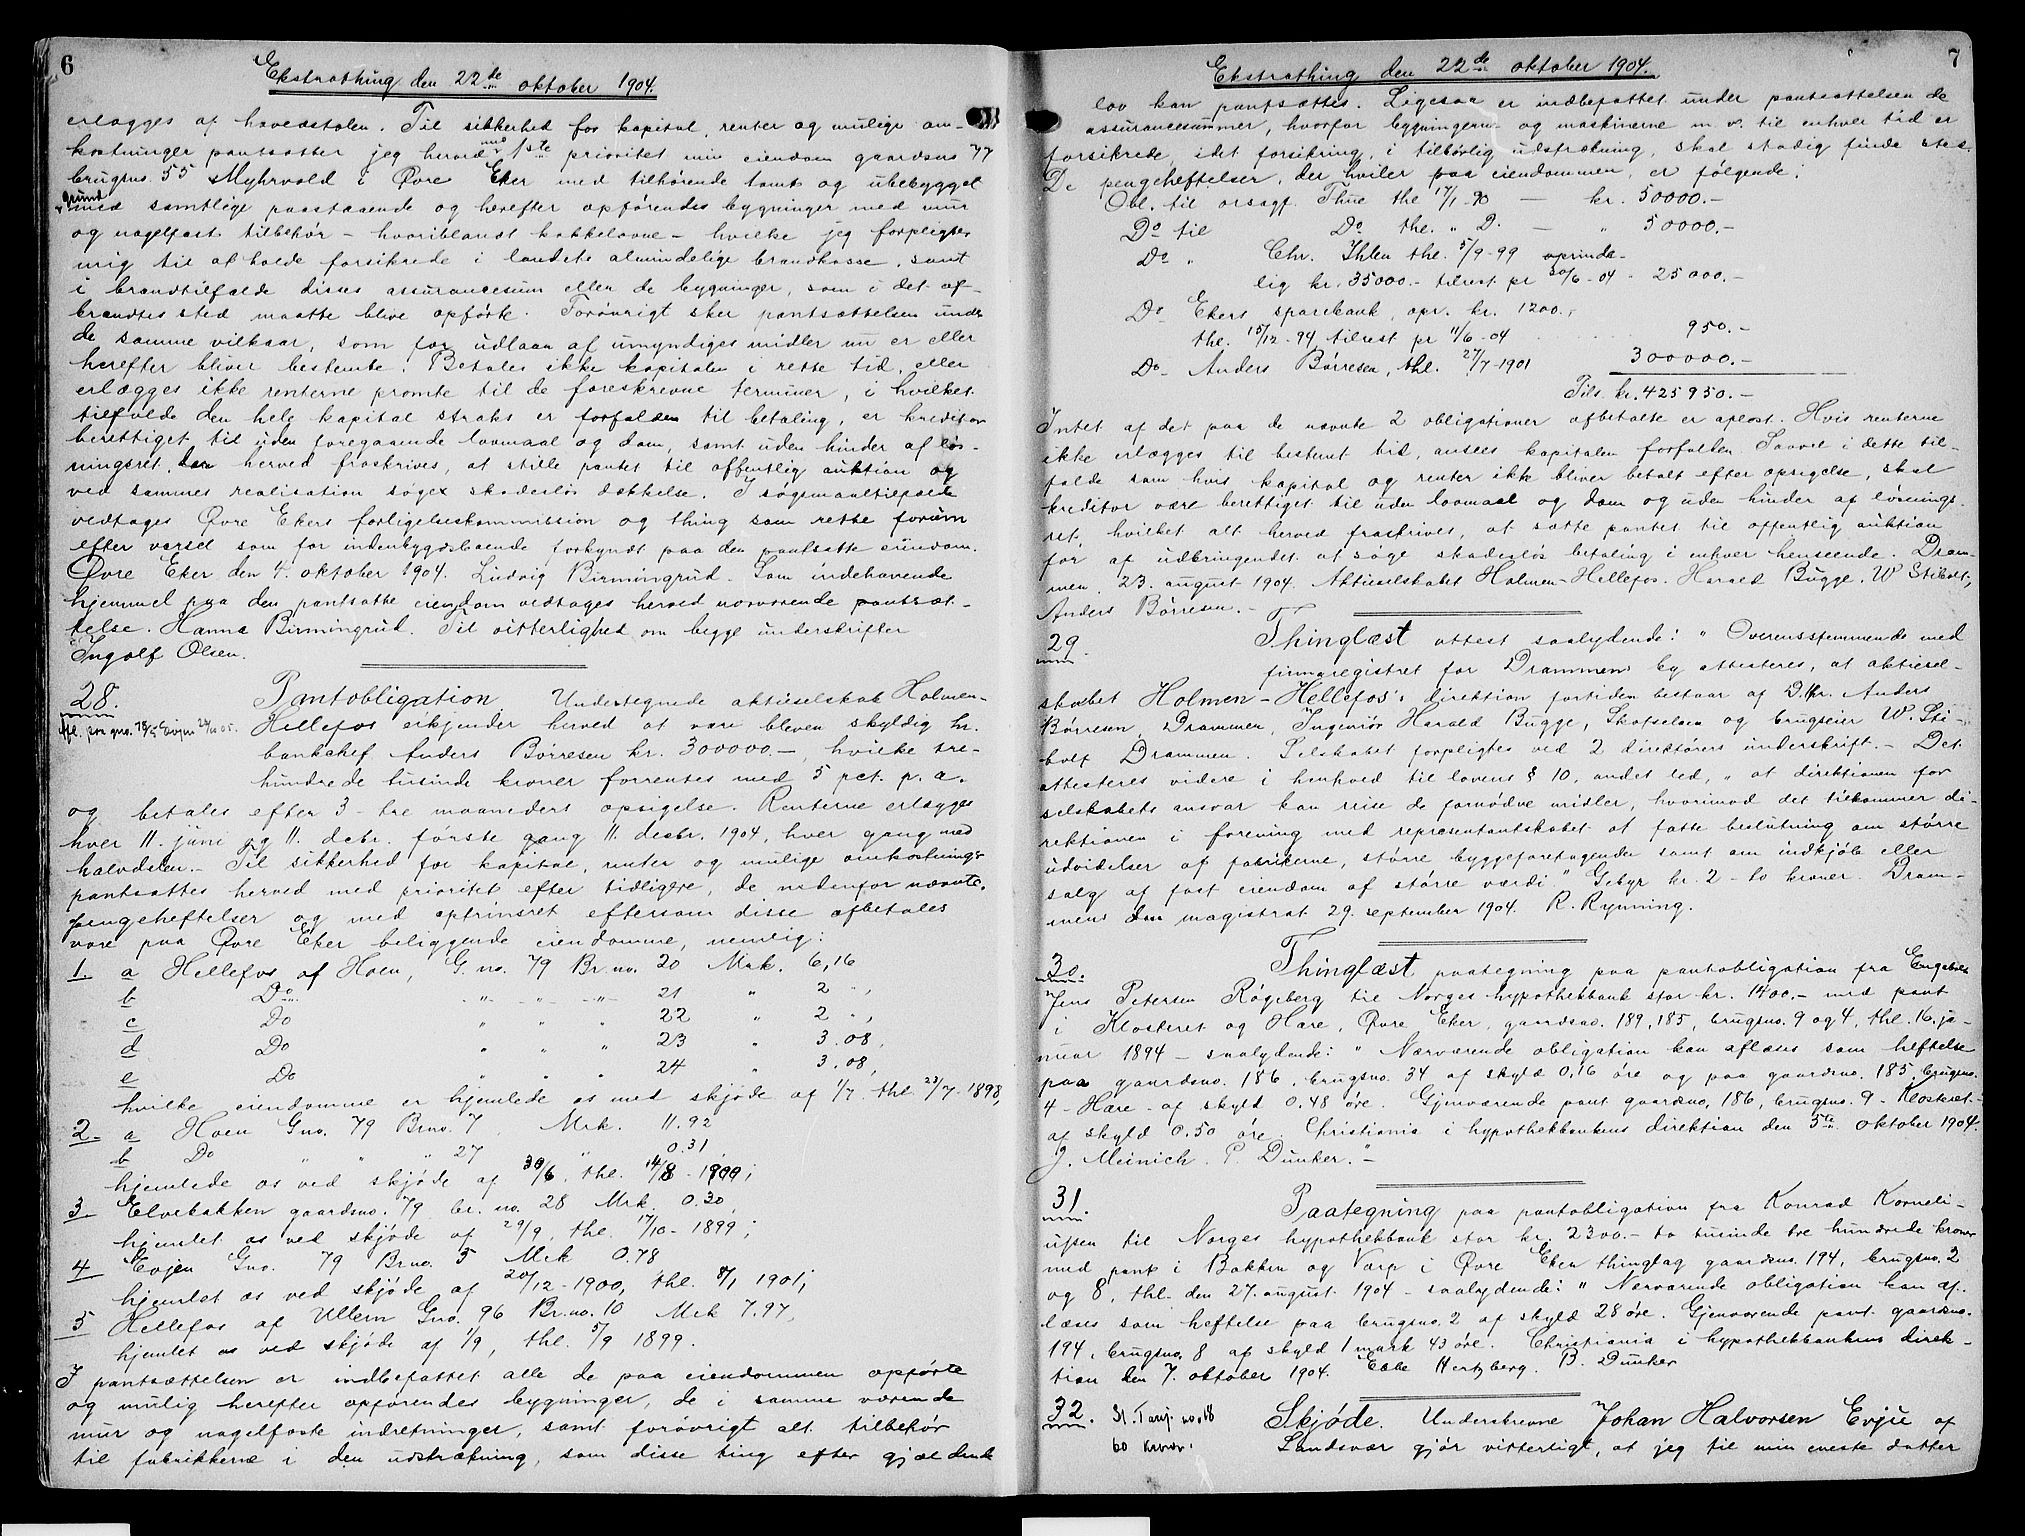 6
Ekstrathing den 22de oktober 1904.
erlægges af hovedstolen. Til sikkerhed for kapital, renter og mulige om-
kostninger pantsætter jeg herved med 1ste prioritet min eiendom gaardsno 77
brugsno. 55 Myhrvold i Øvre Eker med tilhørende tomt og ubebygget
grund
med samtlige paastaaende og herefter opførendes bygninger med mur
og nagelfast tilbehør – hvoriblandt kakkelovne – hvilke jeg forpligter
mig til at holde forsikrede i landets almindelige brandkasse, samt
i brandtilfælde disses assurancesum eller de bygninger, som i det af-
brændtes sted maatte blive opførte. Forøvrigt sker pantsættelsen under
de samme vilkaar, som for udlaan af umyndiges midler nu er eller
herefter bliver bestemte. Betales ikke kapitalen i rette tid, eller
erlægges ikke renterne promte til de foreskrevne terminer, i hvilket
tilfælde den hele kapital straks er forfalden til betaling, er kreditor
berettiget til uden foregaaende lovmaal og dom, samt uden hinder af løs-
ningsret, der herved fraskrives, at stille pantet til offentlig auktion og
ved sammes realisation søges skadesløs dækkelse. I søgsmaalstilfælde
vedtages Øvre Ekers forligelseskommission og thing som rette forum
efter varsel som for indenbygdsboende forkyndt paa den pantsatte eiendom.
Øvre Eker den 4. oktober 1904. Ludvig Birmingrud. Som indehavende
hjemmel paa den pantsatte eiendom vedtages herved nærværende pantsæt-
telse. Hanna Birmingrud. Til vitterlighed om begge underskrifter
Ingolf Olsen.
28. Pantobligation Undertegnede aktieselskab Holmen-
Hellefos erkjender herved at være bleven skyldig hr.
bankchef Anders Børresen kr. 300000 –, hvilke tre-
hundrede tusinde kroner forrentes med 5 pct. p. a.
og betales efter 3 - tre maaneders opsigelse. Renterne erlægges
hver 11. juni og 11. decbr. første gang 11. decbr. 1904, hver gang med
halvdelen. – Til sikkerhed for kapital, renter og mulige omkostninger
pantsættes herved med prioritet efter tidligere, de nedenfor nævnte,
pengeheftelser og med optrinsret eftersom disse afbetales
vore paa Øvre Eker beliggende eiendomme, nemlig:
1. a Hellefos af Hoen, G. no. 79 Br. no. 20 Mrk. 6,16
b Do " " " 21 " 2 " ,
c Do " " " 22 " 2 " ,
d Do " " " 23 " 3.08,
e Do " " " 24 " 3.08,
hvilke eiendomme er hjemlede os med skjøde af 1/7 thl. 23/7 1898,
2. a Hoen Gno. 79 Brno. 7 Mrk. 11.92
b Do " " " 27 " 0.31
hjemlede os ved skjøde af 30/6, thl. 14/8 - 1900;
3 Elvebakken gaardsno. 79 br. no. 28 Mrk. 0.30,
hjemlet os ved skjøde af 29/9, thl. 17/10 - 1899;
4 Evjen Gno. 79 Brno. 5 Mrk 0.78
hjemlet os ved skjøde af 20/12 - 1900, thl. 8/1 1901;
5 Hellefos af Ullern Gno. 96 Br. no. 10 Mrk 7.97,
hjemlet os ved skjøde af 1/9, thl. 5/9 1899.
I pantsættelsen er indbefattet alle de paa eiendommen opførte
og mulig herefter opførendes bygninger, de i samme værende
mur og nagelfaste indretninger, samt forøvrigt alt tilbehør
til fabrikkerne i den udstrækning, som disse ting efter gjældende
7
Ekstrathing den 22de oktober 1904.
lov kan pantsættes. Ligesaa er indbefattet under pantsættelsen de
assurancesummer, hvorfor bygningerne og maskinerne m. v. til enhver tid er
forsikrede, idet forsikring, i tilbørlig udstrækning, skal stadig finde sted.
De pengeheftelser, der hviler paa eiendommen, er følgende:
Obl. til orsagf. Thue thl 17/1-90 — kr. 50000.-
Do til Do thl. " D. — " 50000.-
Do " Chr. Ihlen thl. 5/9-99 oprinde-
lig kr. 35000.- tilrest pr 30/6-04 " 25000.-
Do Ekers sparebank, opr. kr. 1200.,
thl. 15/12-94, tilrest pr 11/6-04 950.-
Do Anders Børresen, thl. 27/7-1901 300000.-
Tils. kr. 425950.-
Intet af det paa de nævnte 2 obligationer afbetalte er aplost. Hvis renterne
ikke erlægges til bestemt tid, ansees kapitalen forfalden. Saavel i dette til-
fælde som hvis kapital og renter ikke bliver betalt efter opsigelse, skal
kreditor være berettiget til uden lovmaal og dom og uden hinder af løsnings-
ret, hvilket alt herved fraskrives, at sætte pantet til offentlig auktion
for af udbringendet at søge skadesløs betaling i enhver henseende. Dram-
men, 23. august 1904. Aktieselskabet Holmen-Hellefos. Harald Bugge. W Stibolt,
Anders Børresen. –
29. Thinglæst attest saalydende: " Overensstemmende med
firmaregistret for Drammens by attesteres, at aktiesel-
skabet Holmen-Hellefos's direktion fortiden bestaar af D'Hr. Anders
Børresen, Drammen, Ingeniør Harald Bugge, Skotselven og brugseier W. Sti-
bolt Drammen. Selskabet forpligtes ved 2 direktørers underskrift. – Det
attesteres videre i henhold til lovens § 10, andet led, " at direktionen for
selskabets ansvar kan reise de fornødne midler, hvorimod det tilkommer di-
rektionen i forening med representantskabet at fatte beslutning om større
udvidelser af fabrikerne, større byggeforetagender samt om indkjøb eller
salg af fast eiendom af større værdi " Gebyr kr. 2 - to kroner. Dram-
mens magistrat 29. september 1904. R. Rynning.
30. Thinglæst paategning paa pantobligation fra Engebret
Jens Petersen Røgeberg til Norges hypothekbank stor kr. 1400.- med pant
i Klosteret og Hære, Øvre Eker, gaardsno. 189, 185, brugsno. 9 og 4, thl. 16. ja-
nuar 1894 – saalydende: " Nærværende obligation kan aflæses som heftelse
paa gaardsno. 186, brugsno. 34 af skyld 0,16 øre og paa gaardsno. 185, brugsno.
4 - Hære - af skyld 0.48 øre. Gjenværende pant gaardsno, 186, brugsno. 9 - Klosteret -
af skyld 0.50 øre. Christiania i hypothekbankens direktion den 5te oktober 1904.
J. Meinich. P. Dunker. " –
31. Paategning paa pantobligation fra Konrad Korneli-
usen til Norges hypothekbank stor kr. 2300.- to tusinde tre hundrede kroner
med pant i Bakken og Varp i Øvre Eker thinglag gaardsno. 194, brugsno. 2
og 8, thl. den 27. august 1904 – saalydende: " Nærværende obligation kan af-
læses som heftelse paa brugsno. 2 af skyld 28 øre. Gjenværende pant gaardsno.
194, brugsno. 8 af skyld 1 mark 43 øre. Christiania i hypothekbankens direk-
tion den 7. oktober 1904. Ebbe Hertzberg. B. Dunker
32. Skjøde. Underskrevne Johan Halvorsen Evju af
60 kroner. Sandsvær gjør vitterligt, at jeg til min eneste datter